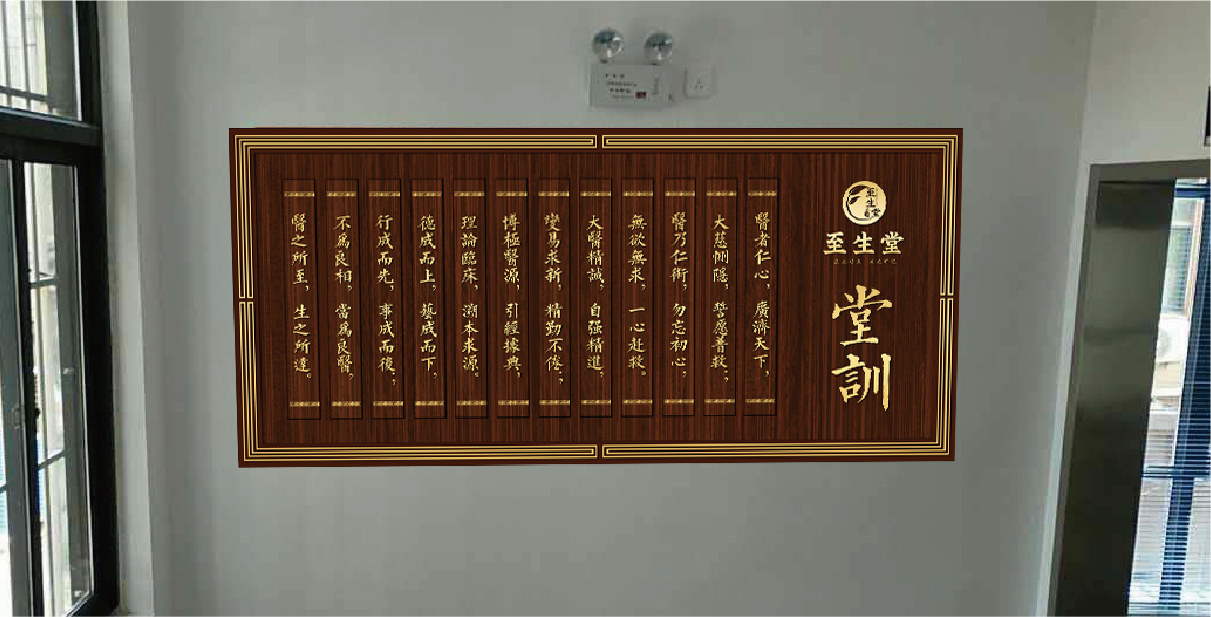 至生堂
至生堂
堂訓
醫者仁心，廣濟天下，
大慈惻隱，誓愿普救，
醫乃仁術，勿忘初心，
無欲無求，一心赴救。
大醫精誠，自强精進，
變易求新，精勤不倦，
博極醫源，引經據典，
理論臨床，溯本求源。
德成而上，藝成而下，
行成而先，事成而後，
不爲良相，當爲良醫。
醫之所至，生之所達。